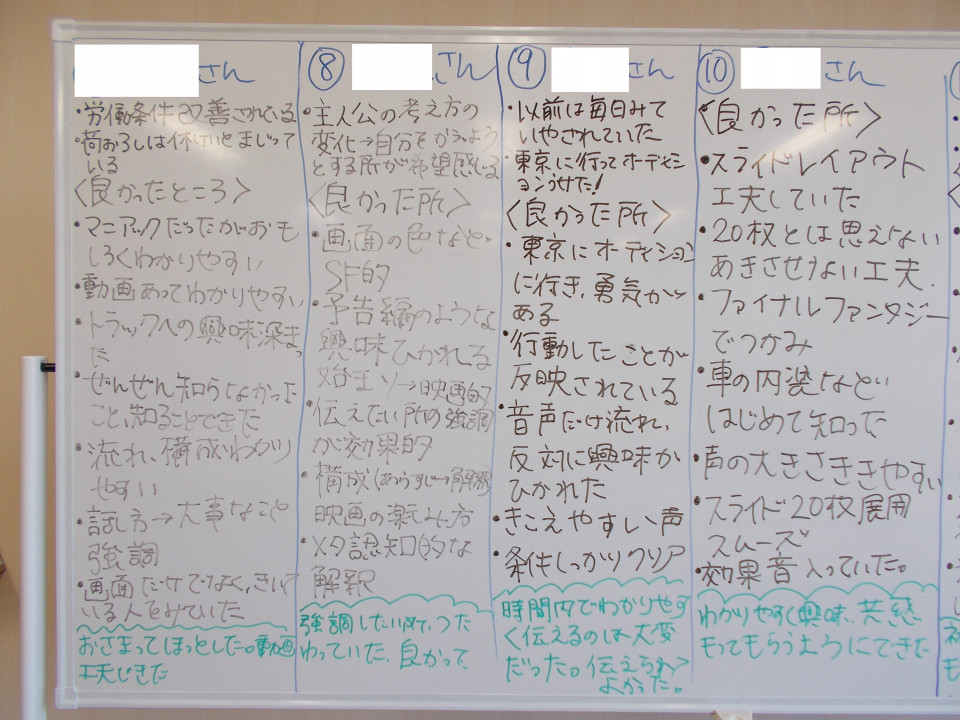 さん
・労働条件改善されている
・荷おろしは休けいとまじって
いる
〈良かったところ〉
・マニアックだったがおも
しろくわかりやすい
・動画あってわかりやすい
・トラックへの興味深まっ
た
・ぜんぜん知らなかった
こと、知ることできた
・流れ、構成わかり
やすい
・話し方→大事なこと
強調
・画面だけでなく、きいて
いる人をみていた
おさまってほっとした。動画
工夫できた
⑧ さん
・主人公の考え方の
変化→自分をかえよう
とする所が希望感じる
〈良かった所〉
・画面の色など、
SF的
・予告編のような
興味ひかれる
始まり→映画的
・伝えたい所の強調
が効果的
・構成(あらすじ→解釈)
映画の楽しみ方
・メタ認知的な
解釈
強調したい所で、つた
わっていた、良かった
⑨ さん
・以前は毎日みて
いやされていた
・東京に行ってオーディシ
ョンうけた!
〈良かった所〉
・東京にオーディション
に行き、勇気が
ある
・行動したことが
反映されている
・音声だけ流れ、
反対に興味が
ひかれた
・きこえやすい声
・条件しっかりクリア
時間内でわかりやす
く伝えるのは大変
だった。伝えられて
よかった。
⑩ さん
〈良かった所〉
・スライドレイアウト
工夫していた
・20枚とは思えない
あきさせない工夫.
・ファイナルファンタジー
でつかみ
・車の内装など
はじめて知った
・声の大きさききやすい
・スライド20枚展用
スムーズ
・効果音入っていた。
わかりやすく興味、共感
もってもらうようにできた